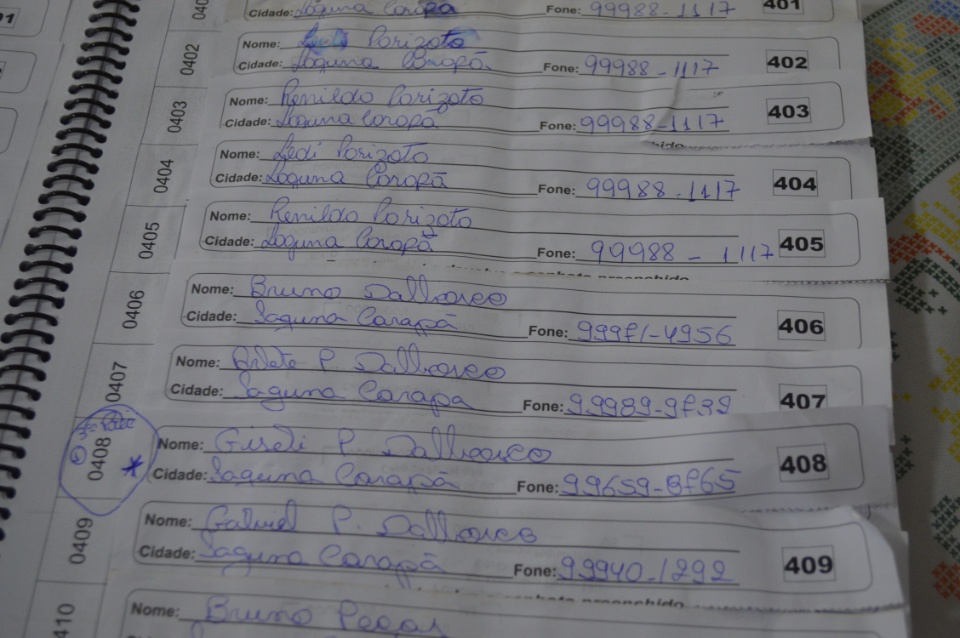 Cidade: Laguna Carapã Fone: 99988-1117 401
0402 Nome: Ledi Parizoto
Cidade: Laguna Carapã Fone: 99988-1117 402
0403 Nome: Renildo Parizoto
Cidade: Laguna Carapã Fone: 99988-1117 403
0404 Nome: Ledi Parizoto
Cidade: Laguna Carapã Fone: 99988-1117 404
0405 Nome: Renildo Parizoto
Cidade: Laguna Carapã Fone: 99988-1117 405
0406 Nome: Bruno Dallvasco
Cidade: Laguna Carapã Fone: 99971-4956 406
0407 Nome: P. Dallvasco
Cidade: Laguna Carapa Fone: 99989-9739 407
0408 Nome: Giseli P. Dallvasco
Cidade: Laguna Carapã Fone: 99659-8765 408
0409 Nome: Gabriel P. Dallvasco
Cidade: Laguna Carapã Fone: 99940-1292 409
Nome: Bruno